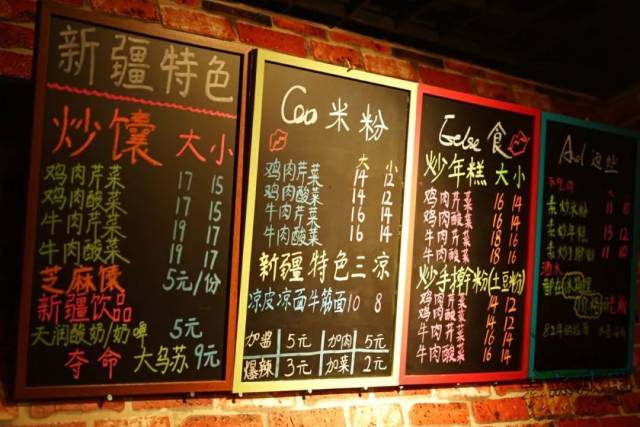 新疆特色
炒馕 大 小
鸡肉芹菜 17 15
鸡肉酸菜 17 15
牛肉芹菜 19 17
牛肉酸菜 19 17
芝麻馕 5元/份
新疆饮品
天润酸奶/奶啤 5元
夺命大乌苏 9元
Coo 米粉
大 小
鸡肉芹菜 14 12
鸡肉酸菜 14 12
牛肉芹菜 16 14
牛肉酸菜 16 14
新疆特色三凉
凉皮凉面牛筋面 10 8
加酱 5元 加肉 5元
爆辣 3元 加菜 2元
食
炒年糕 大 小
鸡肉芹菜 16 14
鸡肉酸菜 16 14
牛肉芹菜 18 16
牛肉酸菜 18 16
炒手擀粉(土豆粉)
鸡肉芹菜 14 12
鸡肉酸菜 14 12
牛肉芹菜 16 14
牛肉酸菜 16 14
And 这些
不吃肉
素炒米粉 11 10
素炒年糕 13 12
素炒手擀粉 11 10
酒水
82年的